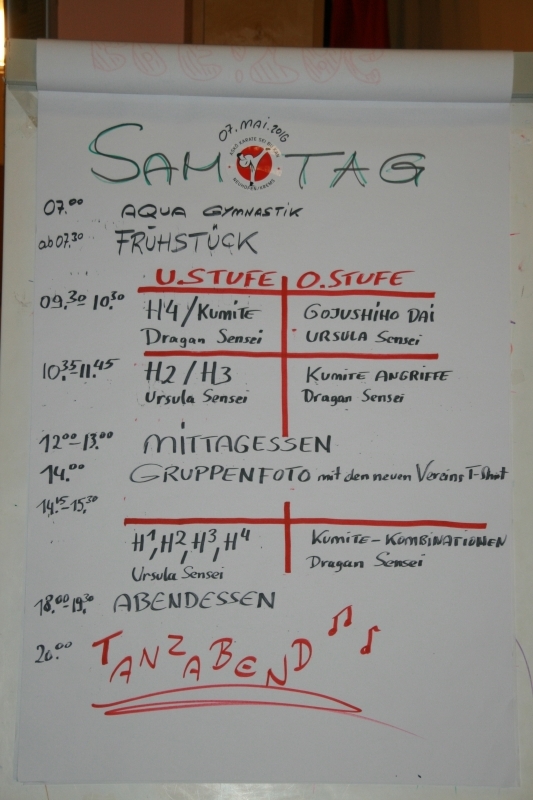 07. MAI. 2016
SAMSTAG
07.00 AQUA GYMNASTIK
ab 07.30 FRÜHSTÜCK
U.STUFE O.STUFE
09.30-10.30 H4/KUMITE GOJUSHIHO DAI
Dragan Sensei URSULA Sensei
10.35-11.45 H2/H3 KUMITE ANGRIFFE
Ursula Sensei Dragan Sensei
12.00-13.00 MITTAGESSEN
14.00 GRUPPENFOTO mit den neuen Vereins T-Shirt
14.15-15.30
H1, H2, H3, H4 KUMITE-KOMBINATIONEN
Ursula Sensei Dragan Sensei
18.00-19.30 ABENDESSEN
20.00 TANZABEND